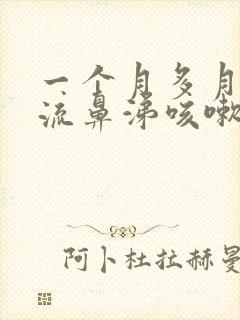 一个月多月
流鼻涕咳嗽
阿卜杜拉赫曼